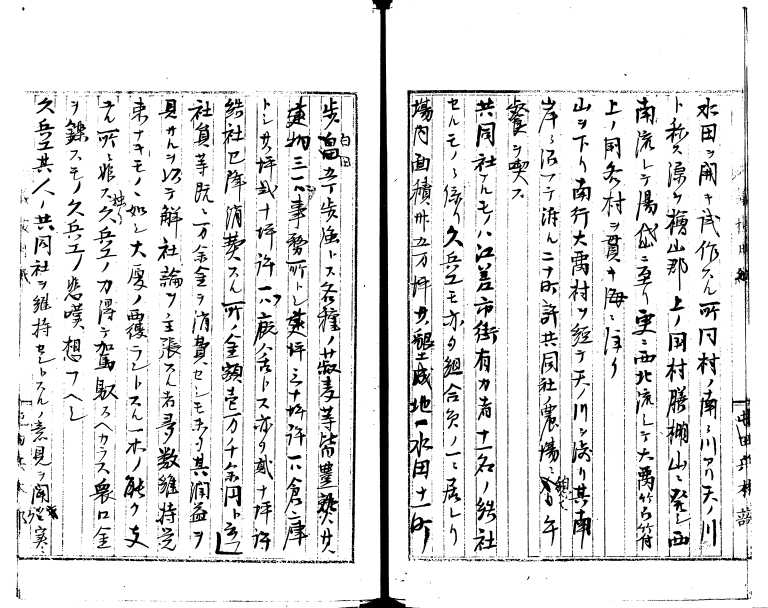 水田ヲ開キ試作スル所同村ノ南ニ川アリ天ノ川
ト称ス源ヲ檜山郡上ノ国村膳棚山ニ発シ西
南流シテ湯岱ニ至リ更ニ西北流シテ大
上ノ国各村ヲ貫キ海ニ注リ
山ヲ下リ南行大留村ヲ経テ天ノ川ヲ渉リ其南
岸ニ沿フテ泝ル二十町許共同社ノ農場ニ午
餐ヲ喫ス
共同社ナルモノハ江差市街有力者十一名ノ結社
セルモノニ係リ久兵エモ亦タ組合員ノ一ニ居レリ
場内面積卅五万坪サ墾成地ハ水田十一町
歩畠五丁歩余トス各種ノ菽麦等皆豊熟サ
建物三一ハ事務所トシ建坪三十坪許一ハ倉庫
トシサ坪弐十坪許一ハ厩舎トス亦タ弐十坪許
結社已降消費スル所ノ金額壱万千余円ト云
社員等既ニ万余金ヲ消費セシモ未タ其潤益ヲ
見サルヲ以テ解社論ヲ主張スル者多数維持覚
束ナキモノヽ如シ大厦ノ覆ラントスル一木ノ能ク支
ユル所ニ非ス久兵エノ力得テ駕馭スヘカラス衆口金
ヲ鑠スモノ久兵エノ悲嘆想フヘシ
久兵エ其人ノ共同社ヲ維持セントスルノ意見ヲ聞